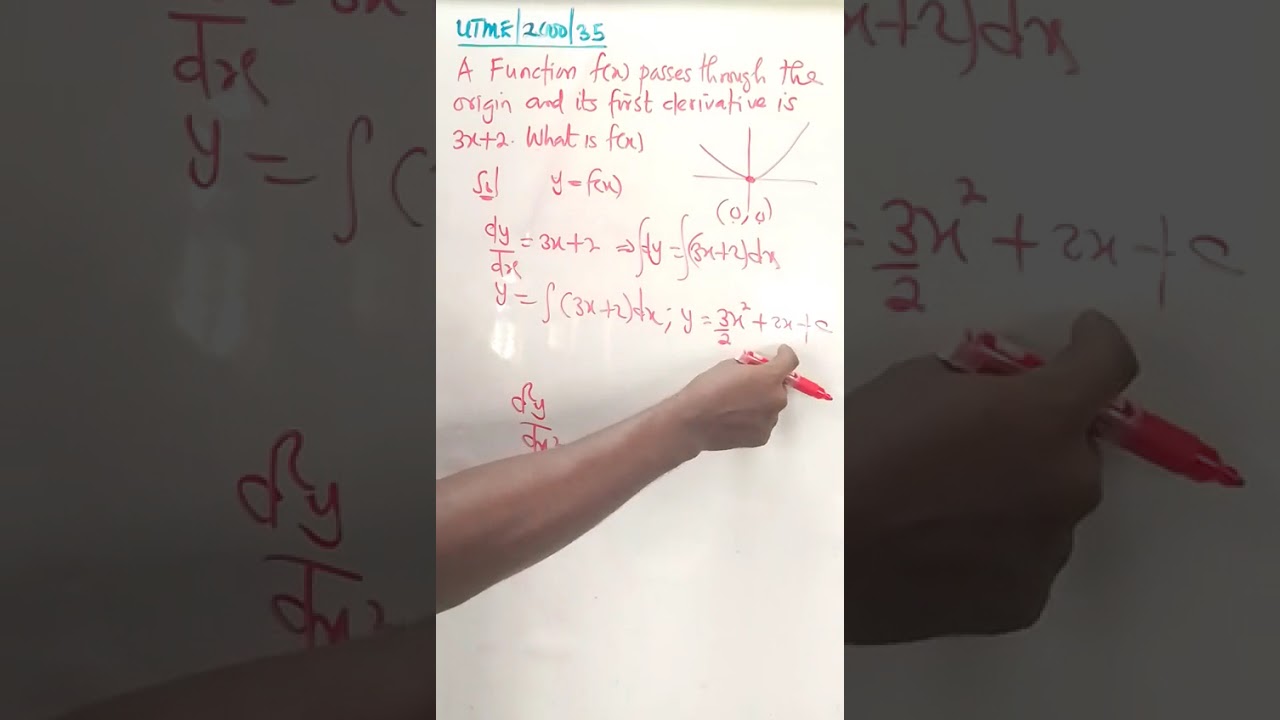 UTME/2000/35
A Function f(x) passes through the
origin and its first derivative is
3x+2. What is f(x)
Sol y = f(x)
(0, 0)
dy/dx = 3x+2 ⇒ ∫dy = ∫(3x+2)dx
y = ∫(3x+2)dx; y = 3x²/2 + 2x + c